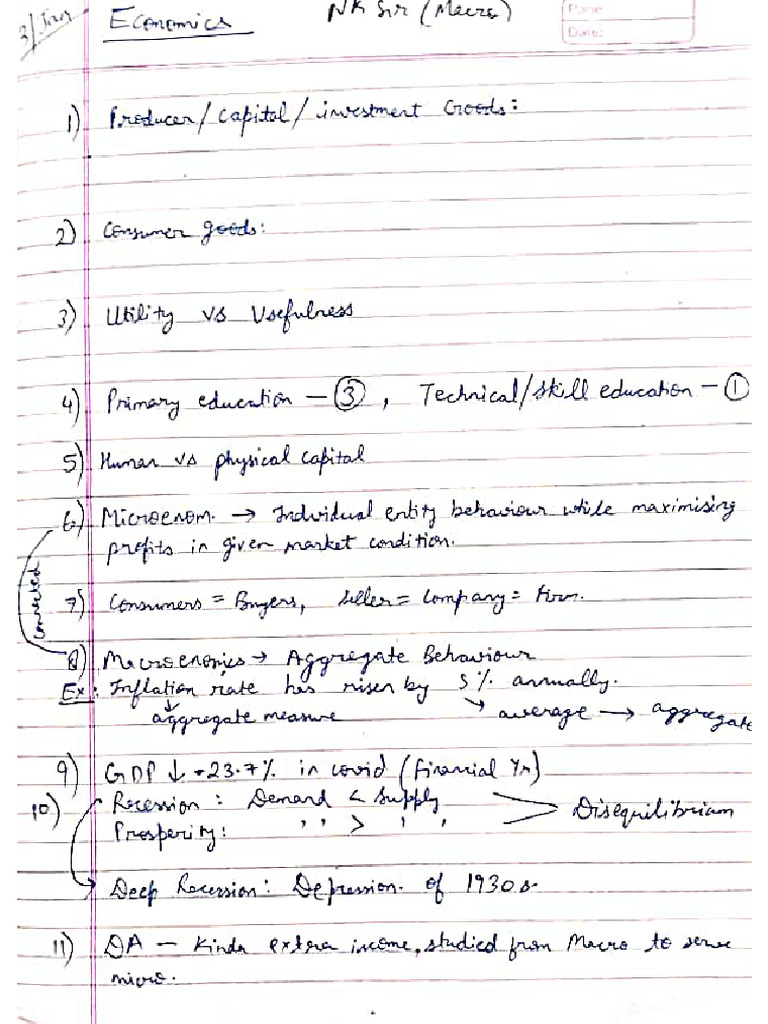 3/Jan
Economics
NK Sir (Macro)
Page
Date:
1) Producer/Capital/investment Goods:
2) Consumer goods:
3) Utility vs Usefulness
4) Primary education – ③, Technical/Skill education – ①
5) Human vs physical capital
6) Microenom. → Individual entity behaviour while maximising
profits in given market condition.
connected
7) Consumers = Buyers, Seller = Company = Firm.
8) Macroenomics → Aggregate Behaviour
Ex: Inflation rate has risen by 5% annually.
↓ aggregate measure → average → aggregate
9) GDP ↓ -23.7% in covid (Financial Yr)
10) Recession: Demand < Supply
Prosperity: ' ' > ' '
Disequilibrium
Deep Recession: Depression. of 1930s.
11) DA – Kinda extra income, studied from Macro to serve
micro.